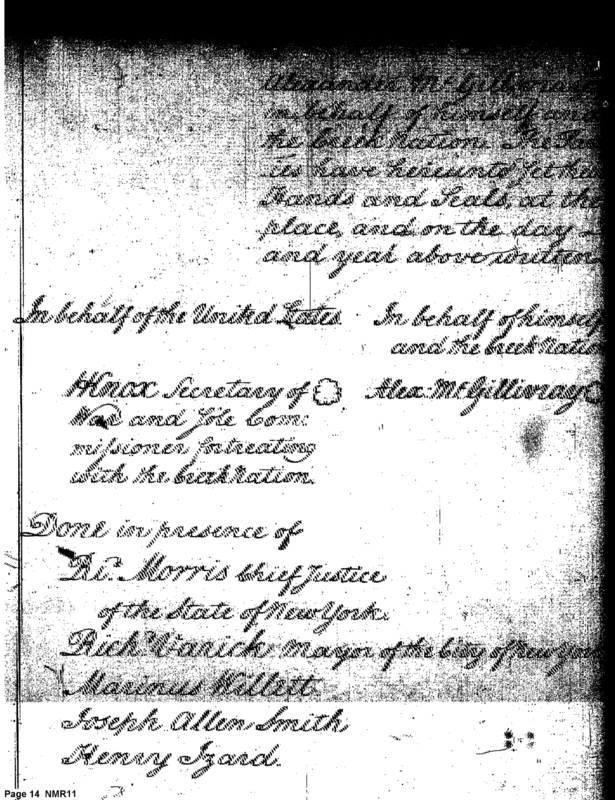 Alexander McGillivray
in behalf of himself and
the Creek Nation. The Par
ties have hereunto set their
Hands and Seals, at the
place, and on the day
and year above written
In behalf of the United States.
In behalf of himself
and the Creek Nation
HKnox Secretary of
War and Sole Com:
missioner for treating
with the Creek Nation.
Alex: McGillivray
Done in presence of
Rd. Morris Chief Justice
of the State of New York.
Richd Varick Mayor of the City of New York
Marinus Willett
Joseph Allen Smith
Henry Izard.
Page 14 NMR11